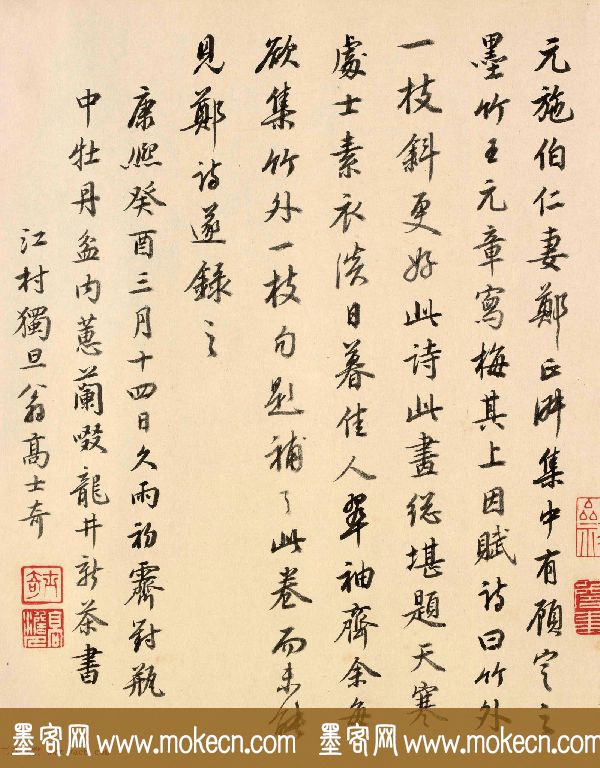 元施伯仁妻鄭正淑集中有顧定之
墨竹王元章寫梅其上因賦詩曰竹外
一枝斜更好此詩此畫總堪題天寒
處士素衣淡日暮佳人翠袖齊余每
欲集竹外一枝句題補之此卷而未能
見鄭詩遂錄之
康熙癸酉三月十四日久雨初霽對瓶
中牡丹盆內蕙蘭啜龍井新茶書
江村獨旦翁高士奇
墨客网 www.mokecn.com 墨客网 www.mokecn.com